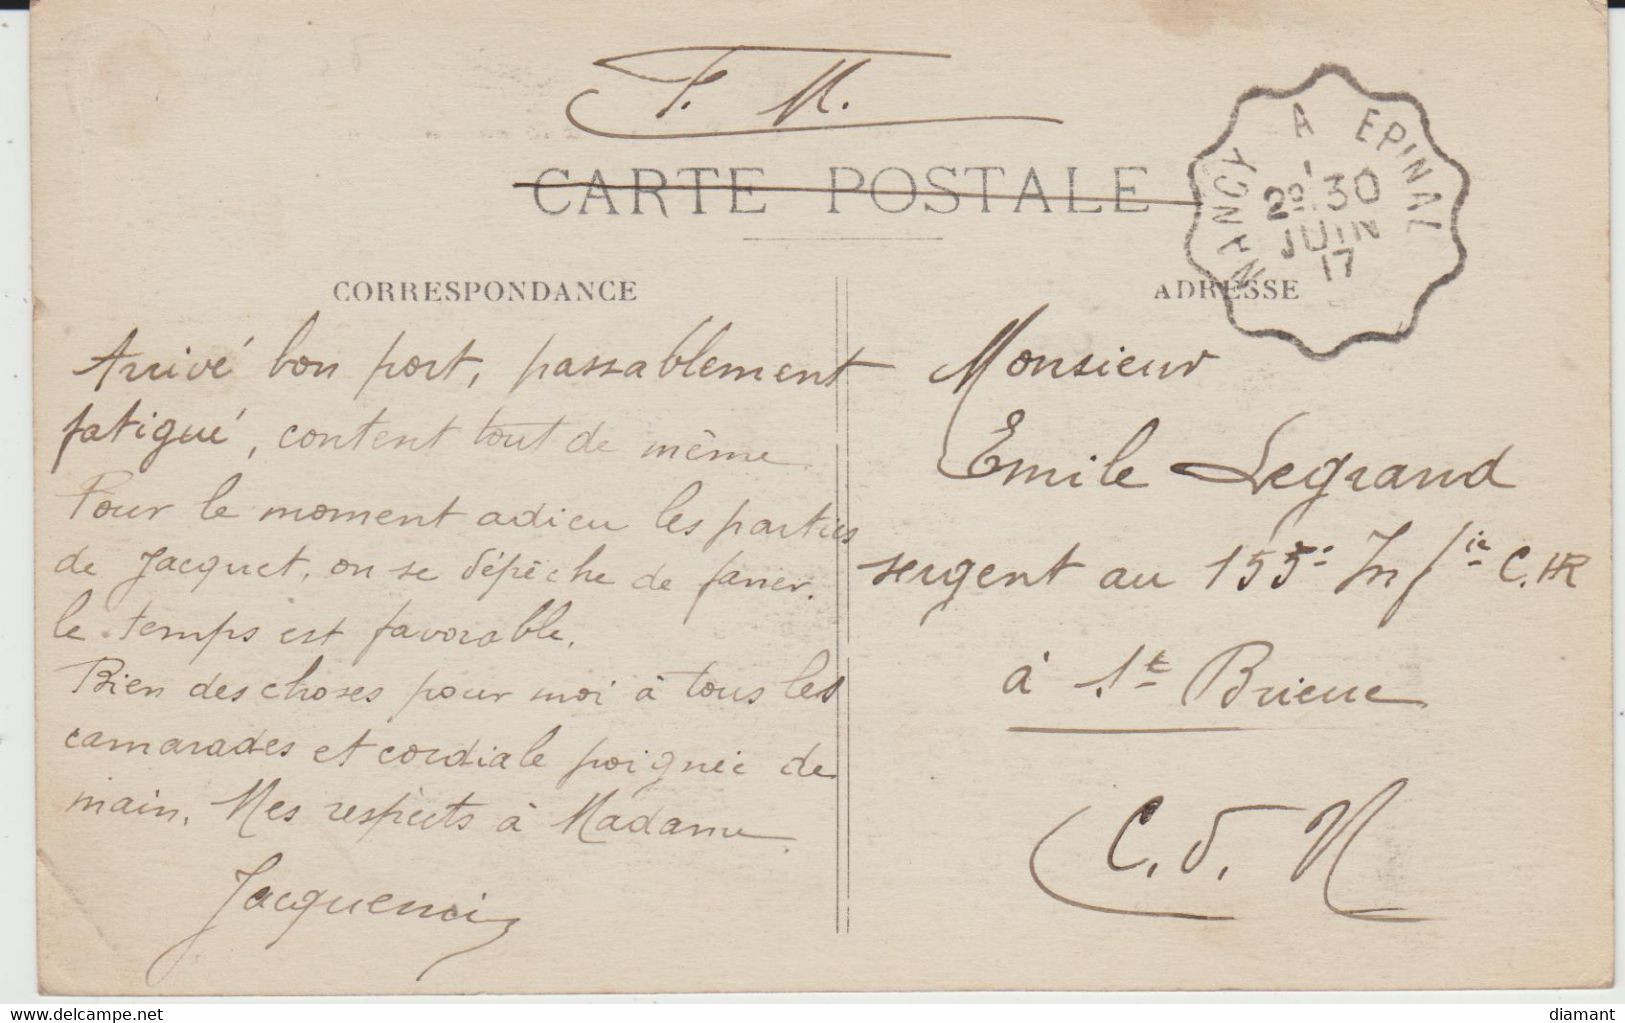 F. M.
CARTE POSTALE
NANCY A EPINAL
2º 30
JUIN
17
CORRESPONDANCE
Arrivé bon port, passablement
fatigué, content tout de même.
Pour le moment adieu les parties
de Jacquet, on se dépêche de faner.
le temps est favorable.
Bien des choses pour moi à tous les
camarades et cordiale poignée de
main. Mes respects à Madame.
ADRESSE
Monsieur
Emile Legrand
sergent au 155e Infie C.HR
à St Brieuc
C. d. N
diamant